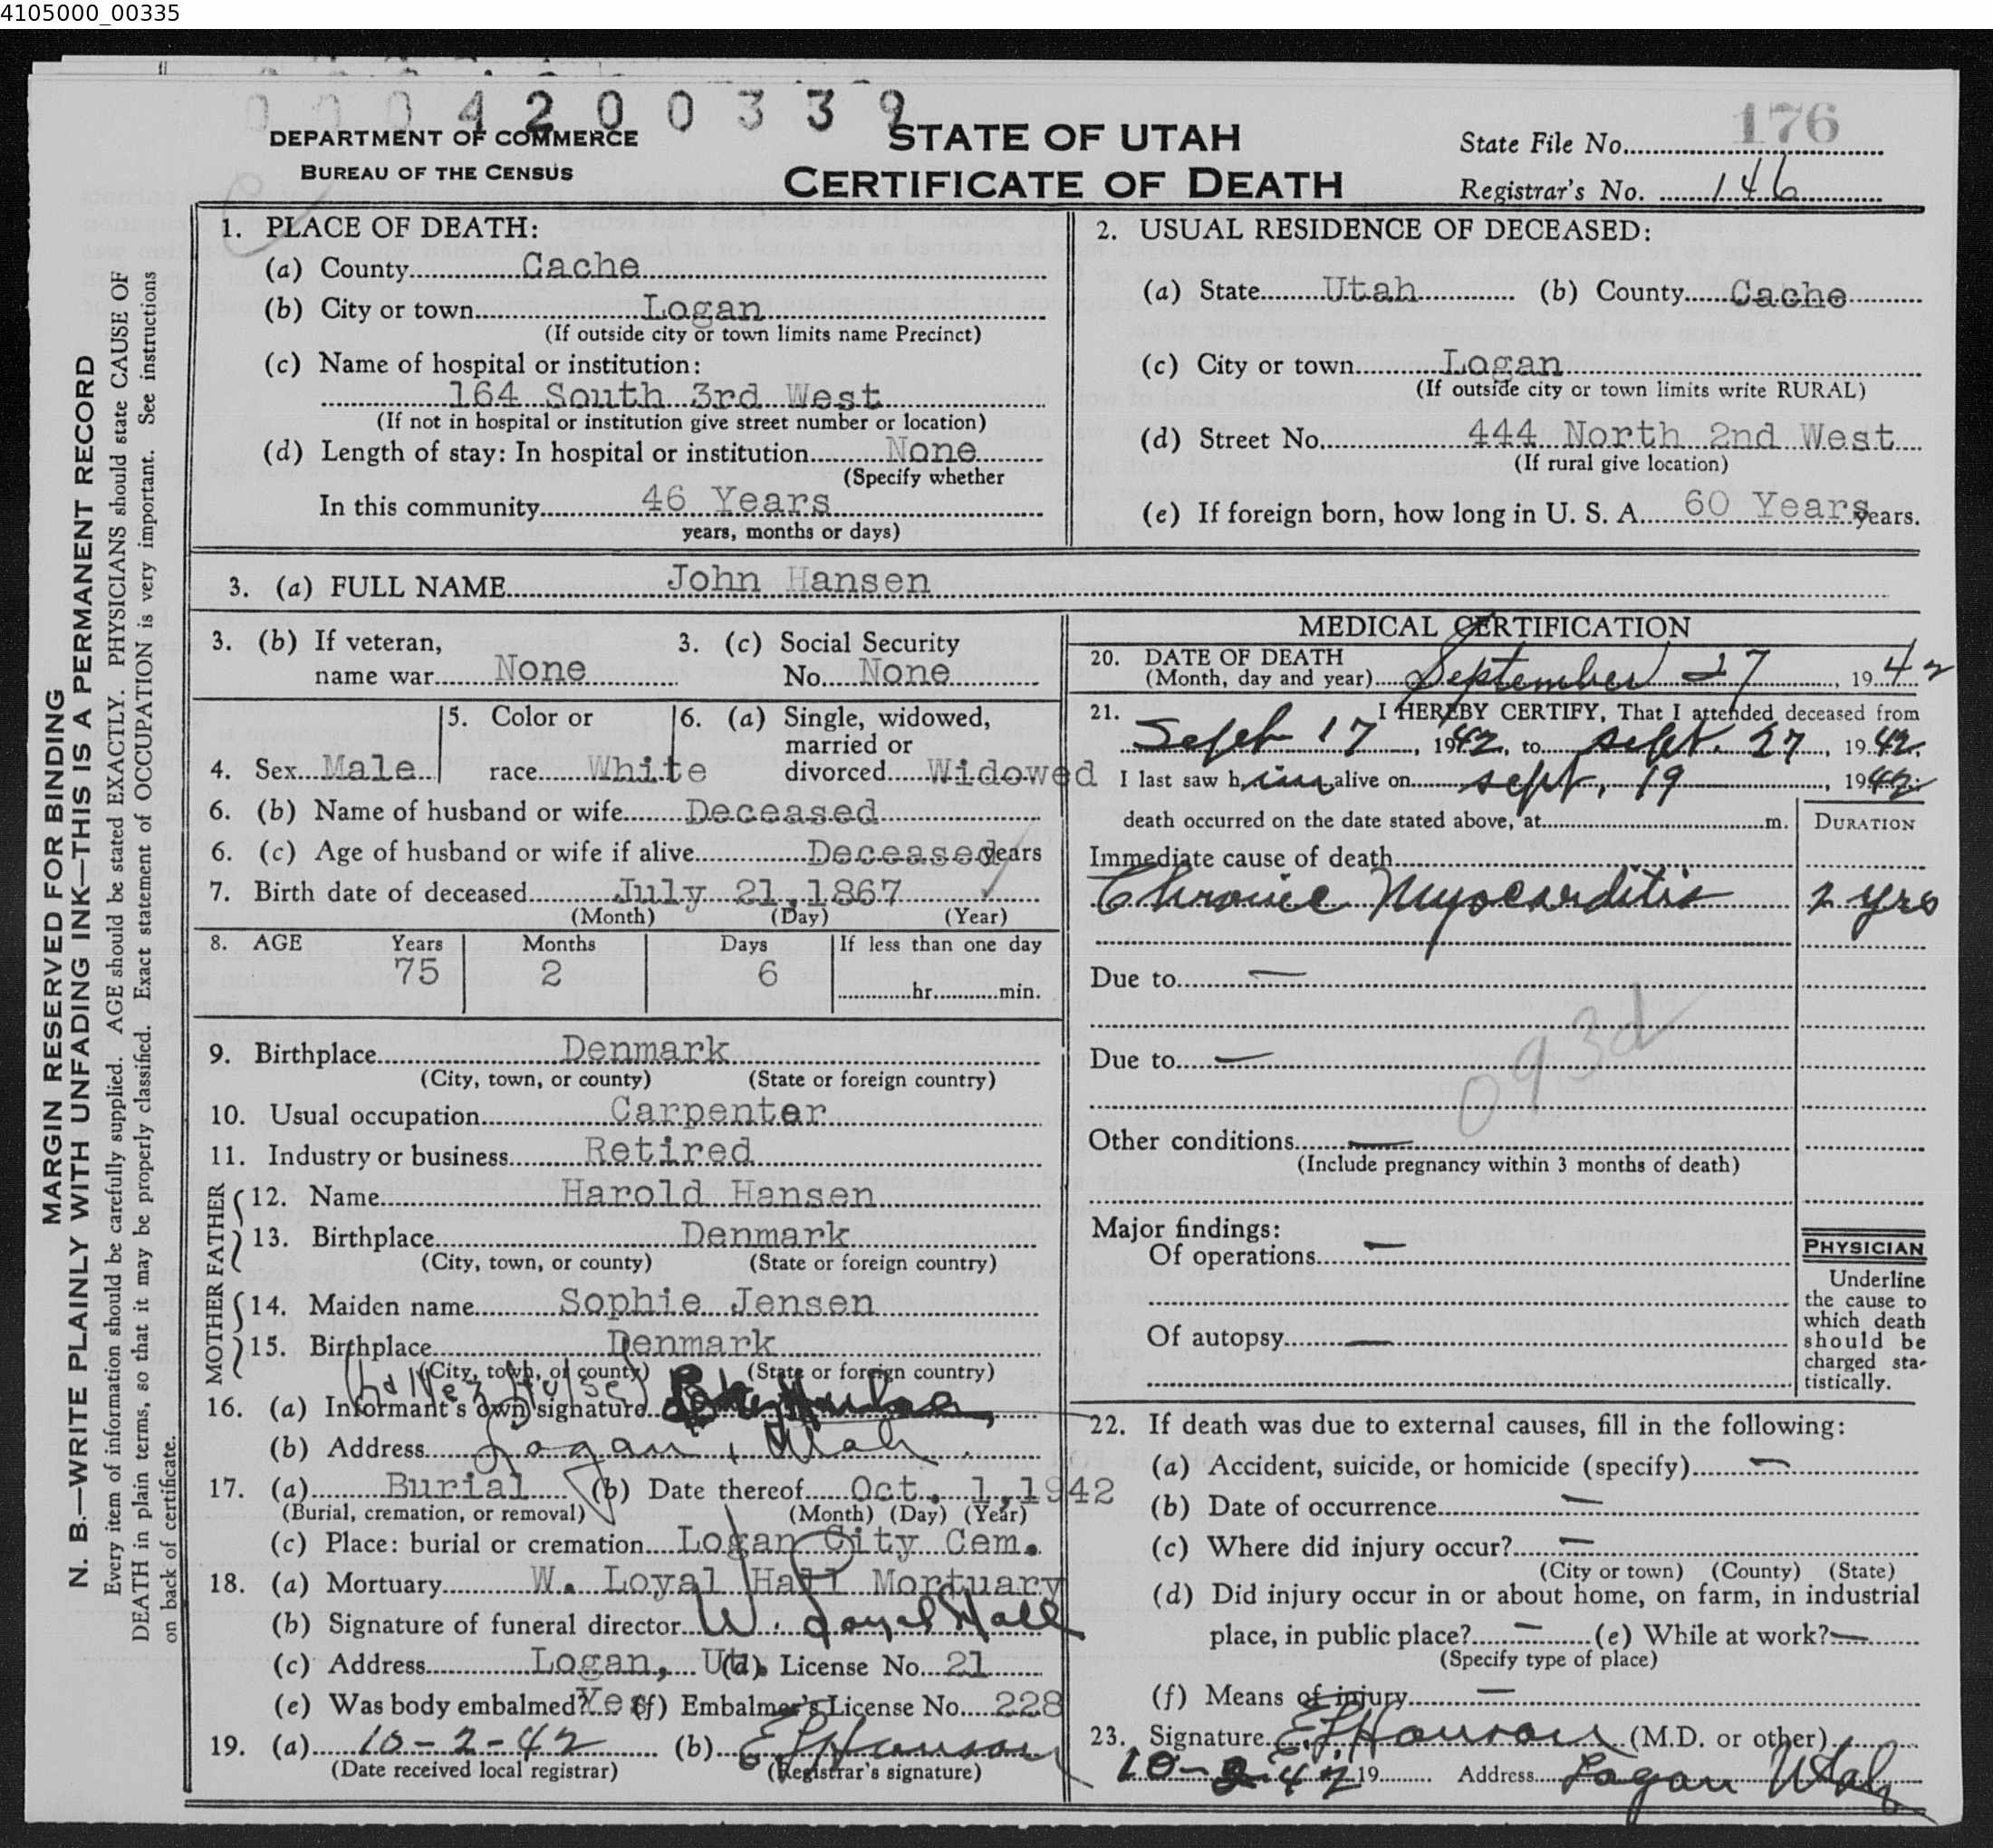 4105000_00335
0004200339
176
DEPARTMENT OF COMMERCE
BUREAU OF THE CENSUS
STATE OF UTAH
CERTIFICATE OF DEATH
State File No.
Registrar's No. 146
MARGIN RESERVED FOR BINDING
N. B.—WRITE PLAINLY WITH UNFADING INK—THIS IS A PERMANENT RECORD
Every item of information should be carefully supplied. AGE should be stated EXACTLY. PHYSICIANS should state CAUSE OF
DEATH in plain terms, so that it may be properly classified. Exact statement of OCCUPATION is very important. See instructions
on back of certificate.
1. PLACE OF DEATH:
(a) County Cache
(b) City or town Logan
(If outside city or town limits name Precinct)
(c) Name of hospital or institution:
164 South 3rd West
(If not in hospital or institution give street number or location)
(d) Length of stay: In hospital or institution None
(Specify whether
In this community 46 Years
years, months or days)
2. USUAL RESIDENCE OF DECEASED:
(a) State Utah (b) County Cache
(c) City or town Logan
(If outside city or town limits write RURAL)
(d) Street No. 444 North 2nd West
(If rural give location)
(e) If foreign born, how long in U. S. A. 60 Years years.
3. (a) FULL NAME John Hansen
3. (b) If veteran, 3. (c) Social Security
name war None No. None
4. Sex Male 5. Color or race White 6. (a) Single, widowed, married or divorced Widowed
6. (b) Name of husband or wife Deceased
6. (c) Age of husband or wife if alive Deceased years
7. Birth date of deceased July 21, 1867
(Month) (Day) (Year)
8. AGE Years Months Days If less than one day
75 2 6 hr. min.
9. Birthplace Denmark
(City, town, or county) (State or foreign country)
10. Usual occupation Carpenter
11. Industry or business Retired
FATHER
12. Name Harold Hansen
13. Birthplace Denmark
(City, town, or county) (State or foreign country)
MOTHER
14. Maiden name Sophie Jensen
15. Birthplace Denmark
(City, town, or county) (State or foreign country)
16. (a) Informant's own signature
(b) Address Logan, Utah
17. (a) Burial (b) Date thereof Oct. 1, 1942
(Burial, cremation, or removal) (Month) (Day) (Year)
(c) Place: burial or cremation Logan City Cem.
18. (a) Mortuary W. Loyal Hall Mortuary
(b) Signature of funeral director W. Loyal Hall
(c) Address Logan, Ut. (d) License No. 21
(e) Was body embalmed? Yes (f) Embalmer's License No. 228
19. (a) 10-2-42 (b)
(Date received local registrar) (Registrar's signature)
MEDICAL CERTIFICATION
20. DATE OF DEATH
(Month, day and year) September 27, 1942
21. I HEREBY CERTIFY, That I attended deceased from
Sept 17, 1942, to Sept. 27, 1942.
I last saw him alive on Sept. 19, 1942;
death occurred on the date stated above, at m. DURATION
Immediate cause of death
Chronic Myocarditis 2 yrs
Due to —
Due to —
093d
Other conditions —
(Include pregnancy within 3 months of death)
Major findings:
Of operations —
Of autopsy —
PHYSICIAN
Underline
the cause to
which death
should be
charged sta-
tistically.
22. If death was due to external causes, fill in the following:
(a) Accident, suicide, or homicide (specify) —
(b) Date of occurrence —
(c) Where did injury occur? —
(City or town) (County) (State)
(d) Did injury occur in or about home, on farm, in industrial
place, in public place? — (e) While at work? —
(Specify type of place)
(f) Means of injury —
23. Signature (M.D. or other)
10-2-42 19 Address Logan Utah